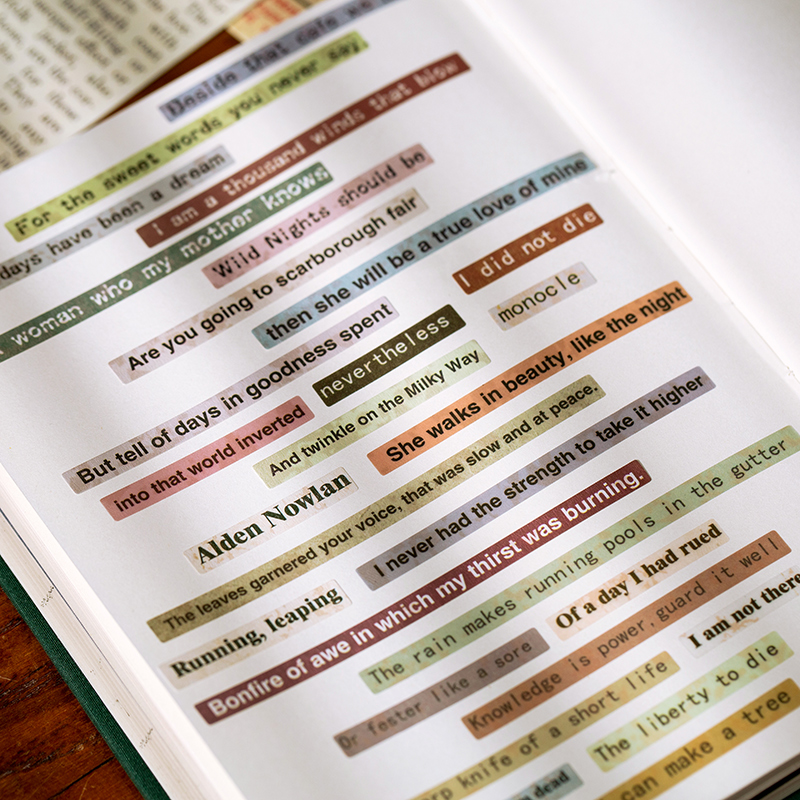 Beside that cafe we
For the sweet words you never say
i am a thousand winds that blow
days have been a dream
woman who my mother knows
Wild Nights should be
Are you going to scarborough fair
then she will be a true love of mine
I did not die
monocle
But tell of days in goodness spent
nevertheless
into that world inverted
And twinkle on the Milky Way
She walks in beauty, like the night
Alden Nowlan
The leaves garnered your voice, that was slow and at peace.
I never had the strength to take it higher
Running, leaping
Bonfire of awe in which my thirst was burning.
The rain makes running pools in the gutter
Of a day I had rued
Or fester like a sore
Knowledge is power, guard it well
I am not there
knife of a short life
The liberty to die
dead
can make a tree